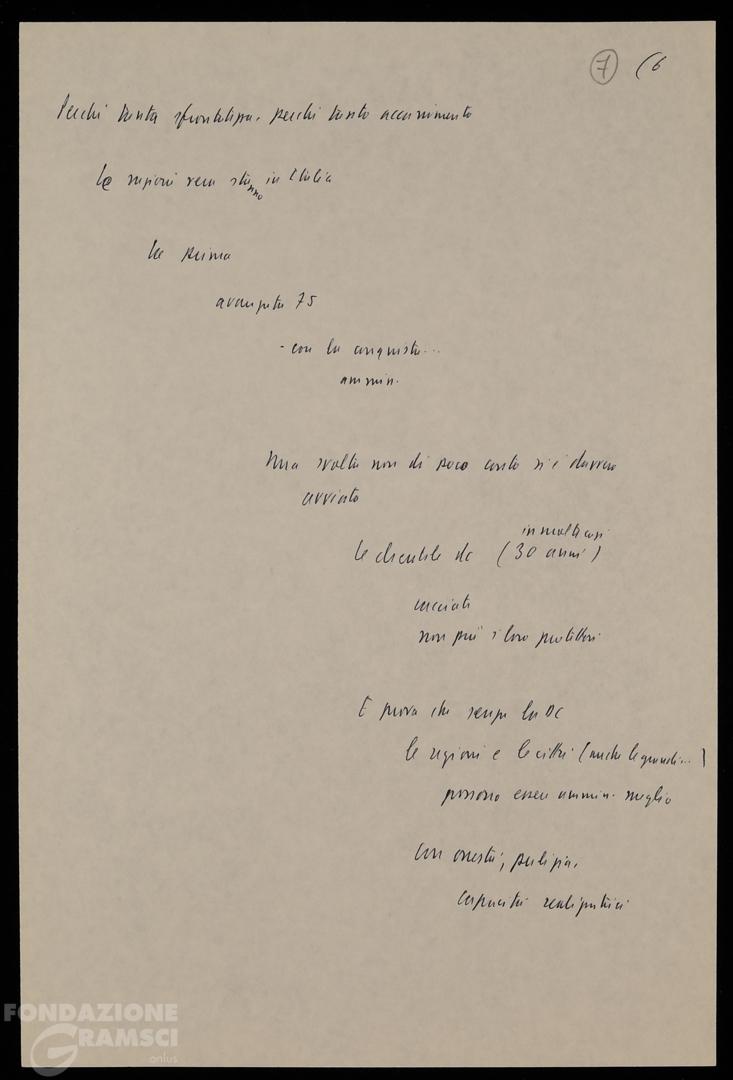 7 (6
Perché tanta sfrontatezza, perché tanto accanimento
Le ragioni vere stanno in Italia
La prima
avanzata 75
- con la conquista...
ammin.
Una svolta non di poco conto si è davvero
avviata
in molti casi
Le clientele dc (30 anni)
cacciate
non più i loro protettori
E prova che senza la DC
le regioni e le città (anche le grandi...)
possono essere ammin. meglio
Con onestà, pulizia,
capacità realizzatrici
FONDAZIONE
GRAMSCI
onlus